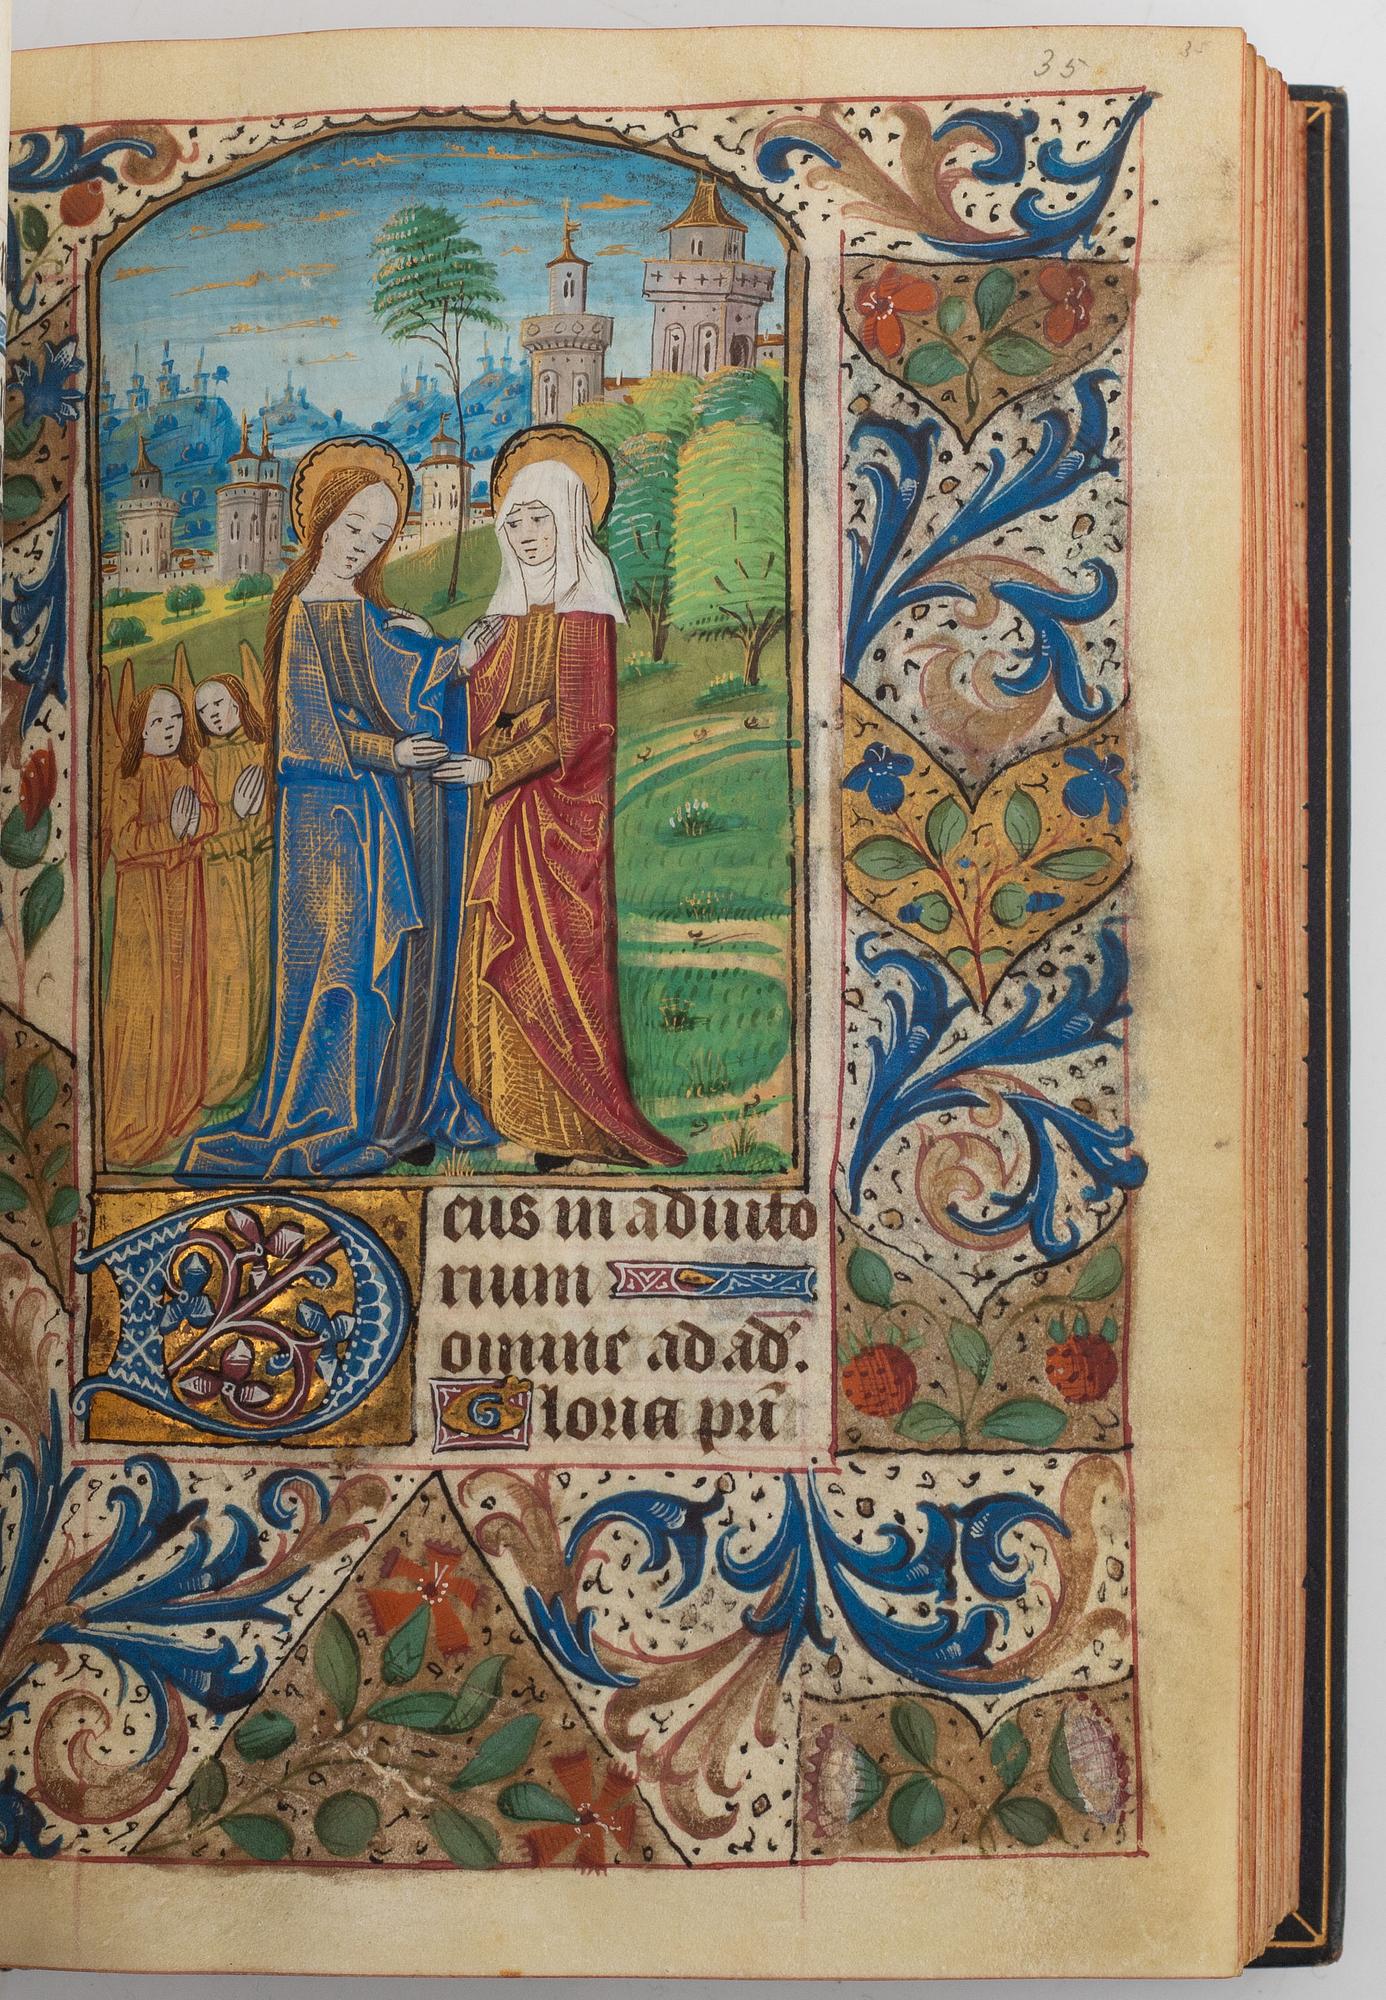 35
35
Deus in adiuto
rium
omine ad ad͛.
Gloria pr̄i